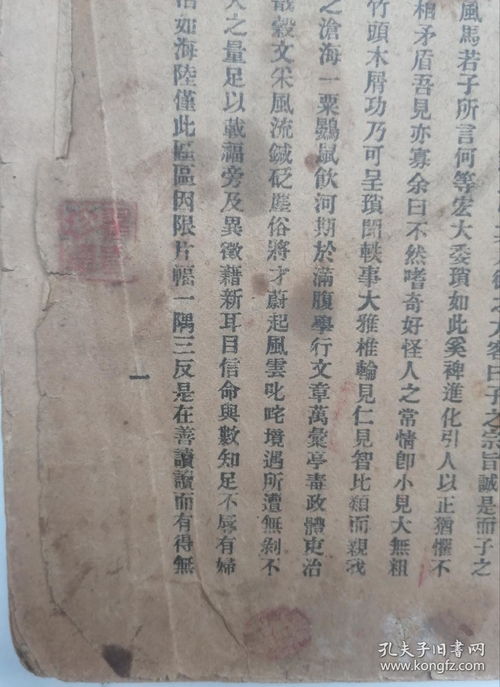 客曰子之宗旨誠是而子之
風馬若子所言何等宏大委瑣如此奚裨進化引人以正猶懼不
相矛盾吾見亦寡余曰不然嗜奇好怪人之常情卽小見大無粗
竹頭木屑功乃可呈瑣聞軼事大雅椎輪見仁見智比類而親我
之滄海一粟鼴鼠飲河期於滿腹學行文章萬彙亭毒政體吏治
縠文宋風流鍼砭塵俗將才蔚起風雲叱咤境遇所遭無剝不
大之量足以載福旁及異徵藉新耳目信命與數知足不辱有婦
如海陸僅此區區因限片幅一隅三反是在善讀讀而有得無
一
孔夫子旧书网
www.kongfz.com